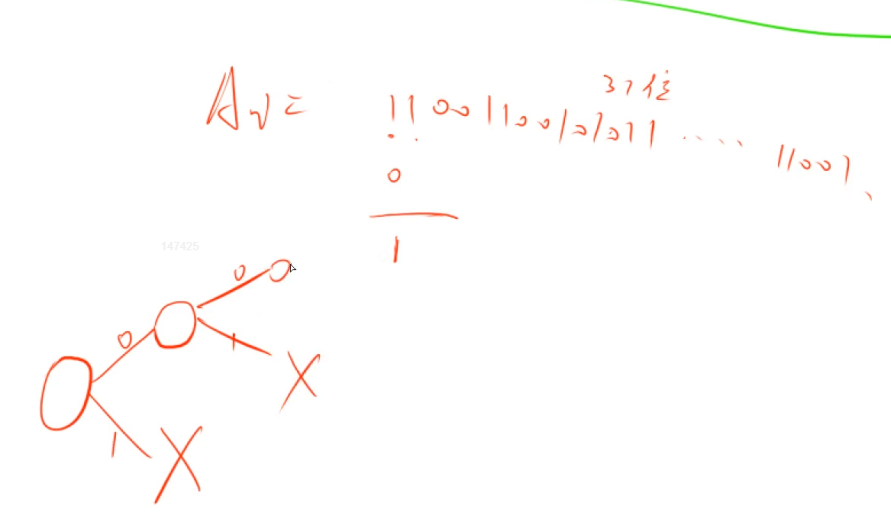 Av=
37位
11001100101011 .... 11001
0
1
147425
0
0
1
1
X
X